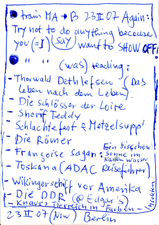 • train MA → B 23 II 07 Again:
Try not to do anything because
you (=I) SAY want to SHOW OFF!
• " " (was) reading:
- Thorwald Dethlefsen (Das
Leben nach dem Leben)
- Die Schlösser der Loire
- Short Teddy
- Schlachtefest & Metzelsuppe
- Die Römer
- Françoise Sagan: Ein bisschen Sonne im kalten Wasser
- Toskana (ADAC Reiseführer)
- Wikingerschiff vor Amerika
- Die DDR (@ Edgar's)
- Knaurs Tierreich in Farben -
23 II 07 (Now) Berlin